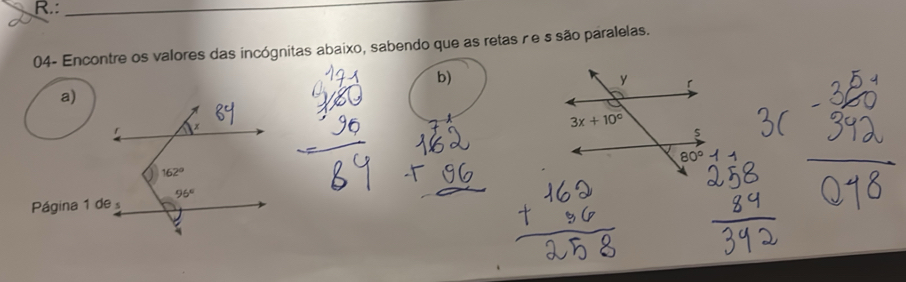 R.:
04- Encontre os valores das incógnitas abaixo, sabendo que as retas r e s são paralelas.
a)
r
x
84
162°
96°
s
Página 1 de
171
180
96
84
b)
71
162
+ 96
y
r
3x + 10°
s
80°
162
+ 96
258
11
258
84
392
51
- 360
392
098